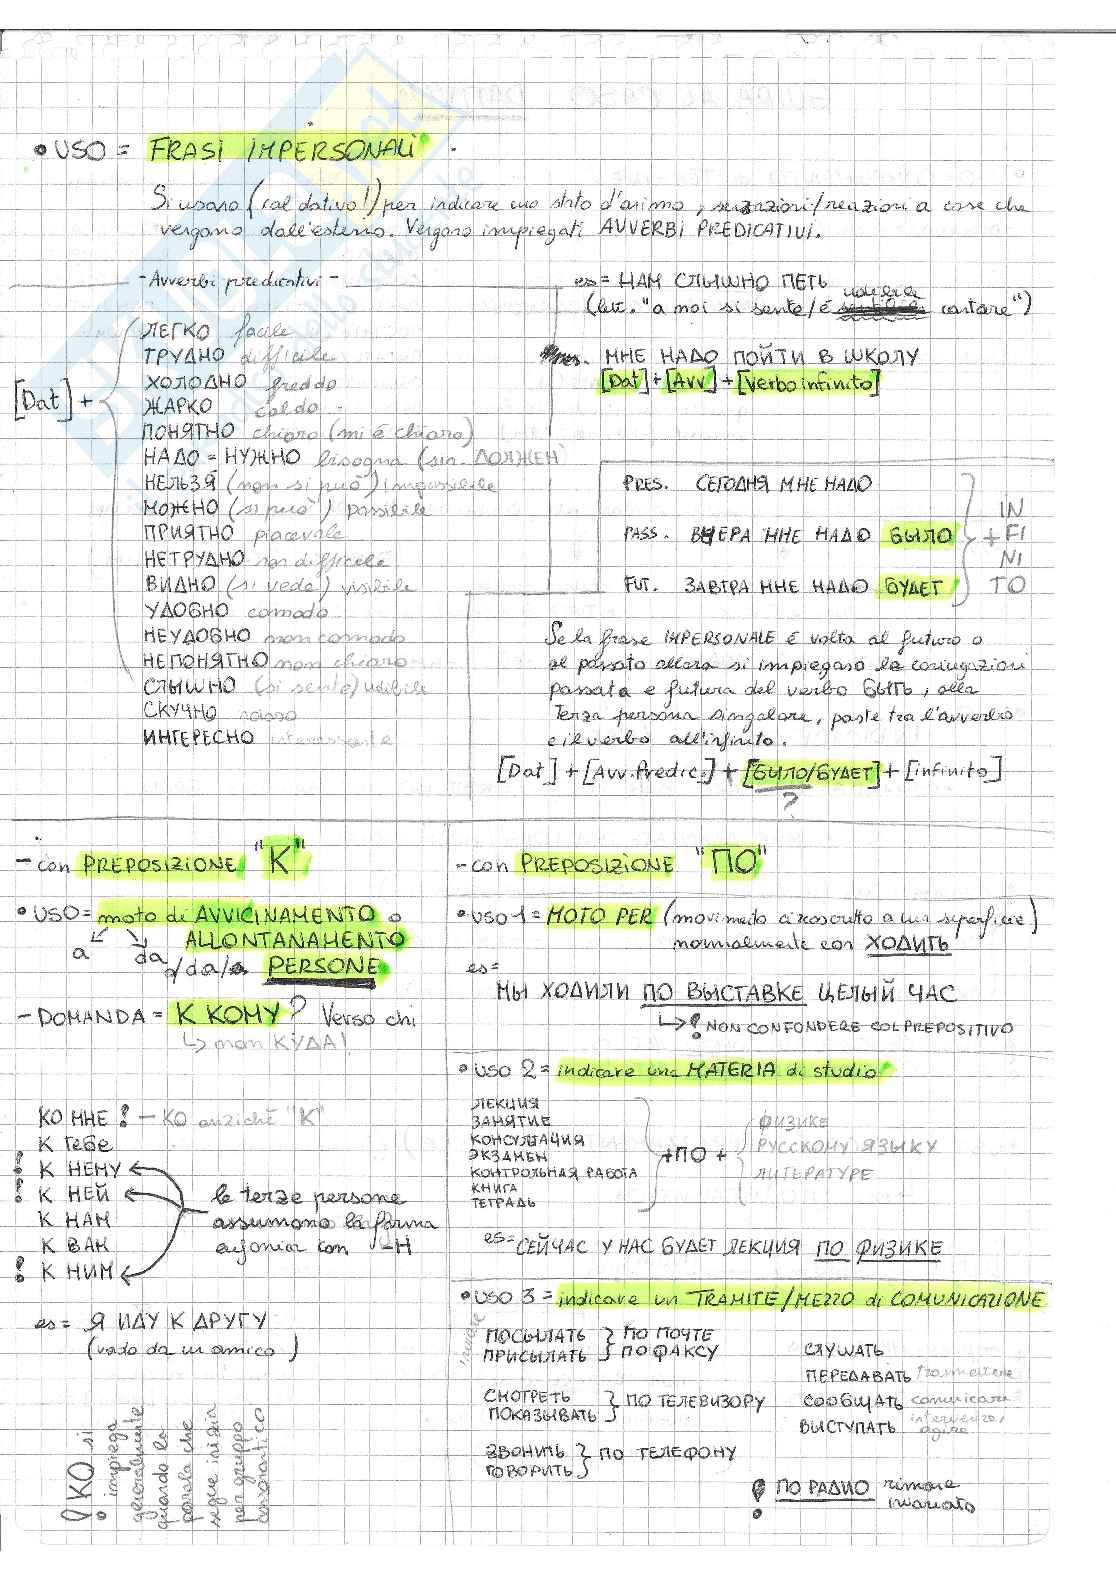 • USO = FRASI IMPERSONALI
Si usano (col dativo!) per indicare uno stato d'animo, sensazioni/reazioni a cose che
vengono dall'esterno. Vengono impiegati AVVERBI PREDICATIVI.
- Avverbi predicativi -
[Dat] +
ЛЕГКО facile
ТРУДНО difficile
ХОЛОДНО freddo
ЖАРКО caldo
ПОНЯТНО chiaro (mi è chiaro)
НАДО = НУЖНО bisogna (sin. ДОЛЖЕН)
НЕЛЬЗЯ (non si può) impossibile
МОЖНО (si può) possibile
ПРИЯТНО piacevole
НЕТРУДНО non difficile
ВИДНО (si vede) visibile
УДОБНО comodo
НЕУДОБНО non comodo
НЕПОНЯТНО non chiaro
СЛЫШНО (si sente) udibile
СКУЧНО noioso
ИНТЕРЕСНО interessante
es = НАМ СЛЫШНО ПЕТЬ
(lett. "a noi si sente/è udibile cantare")
es. МНЕ НАДО ПОЙТИ В ШКОЛУ
[Dat] + [Avv] + [Verbo infinito]
PRES. СЕГОДНЯ МНЕ НАДО
PASS. ВЧЕРА МНЕ НАДО БЫЛО
FUT. ЗАВТРА МНЕ НАДО БУДЕТ
+ IN
FI
NI
TO
Se la frase IMPERSONALE è volta al futuro o
al passato allora si impiegano le coniugazioni
passata e futura del verbo БЫТЬ, alla
Terza persona singolare, poste tra l'avverbo
e il verbo all'infinito.
[Dat] + [Avv. Predic.] + [БЫЛО/БУДЕТ] + [infinito]
?
- con PREPOSIZIONE "К"
• USO = moto di AVVICINAMENTO o
ALLONTANAMENTO
a da
a/da PERSONE
- DOMANDA = К КОМУ? Verso chi
↳ non КУДА!
КО МНЕ ! - КО anziché "К"
К тебе
! К НЕМУ
! К НЕЙ
К НАМ
К ВАМ
! К НИМ
le terze persone
assumono la forma
eufonica con -Н
es = Я ИДУ К ДРУГУ
(vado da un amico)
! КО si
impiega
generalmente
quando la
parola che
segue inizia
per gruppo
consonantico
- con PREPOSIZIONE "ПО"
• USO 1 = MOTO PER (movimento circoscritto a una superficie)
normalmente con ХОДИТЬ
es =
МЫ ХОДИЛИ ПО ВЫСТАВКЕ ЦЕЛЫЙ ЧАС
↳ ! NON CONFONDERE COL PREPOSITIVO
• USO 2 = indicare una MATERIA di studio
ЛЕКЦИЯ
ЗАНЯТИЕ
КОНСУЛТАЦИЯ
ЭКЗАМЕН
КОНТРОЛЬНАЯ РАБОТА
КНИГА
ТЕТРАДЬ
+ ПО +
ФИЗИКЕ
РУССКОМУ ЯЗЫКУ
ЛИТЕРАТУРЕ
es = СЕЙЧАС У НАС БУДЕТ ЛЕКЦИЯ ПО ФИЗИКЕ
• USO 3 = indicare un TRAMITE/MEZZO di COMUNICAZIONE
inviare
ПОСЫЛАТЬ } ПО ПОЧТЕ
ПРИСЫЛАТЬ } ПО ФАКСУ
СМОТРЕТЬ
ПОКАЗЫВАТЬ } ПО ТЕЛЕВИЗОРУ
ЗВОНИТЬ
ГОВОРИТЬ } ПО ТЕЛЕФОНУ
СЛУШАТЬ
ПЕРЕДАВАТЬ trasmettere
СООБЩАТЬ comunicare
ВЫСТУПАТЬ intervenire, agire
! ПО РАДИО rimane
invariato